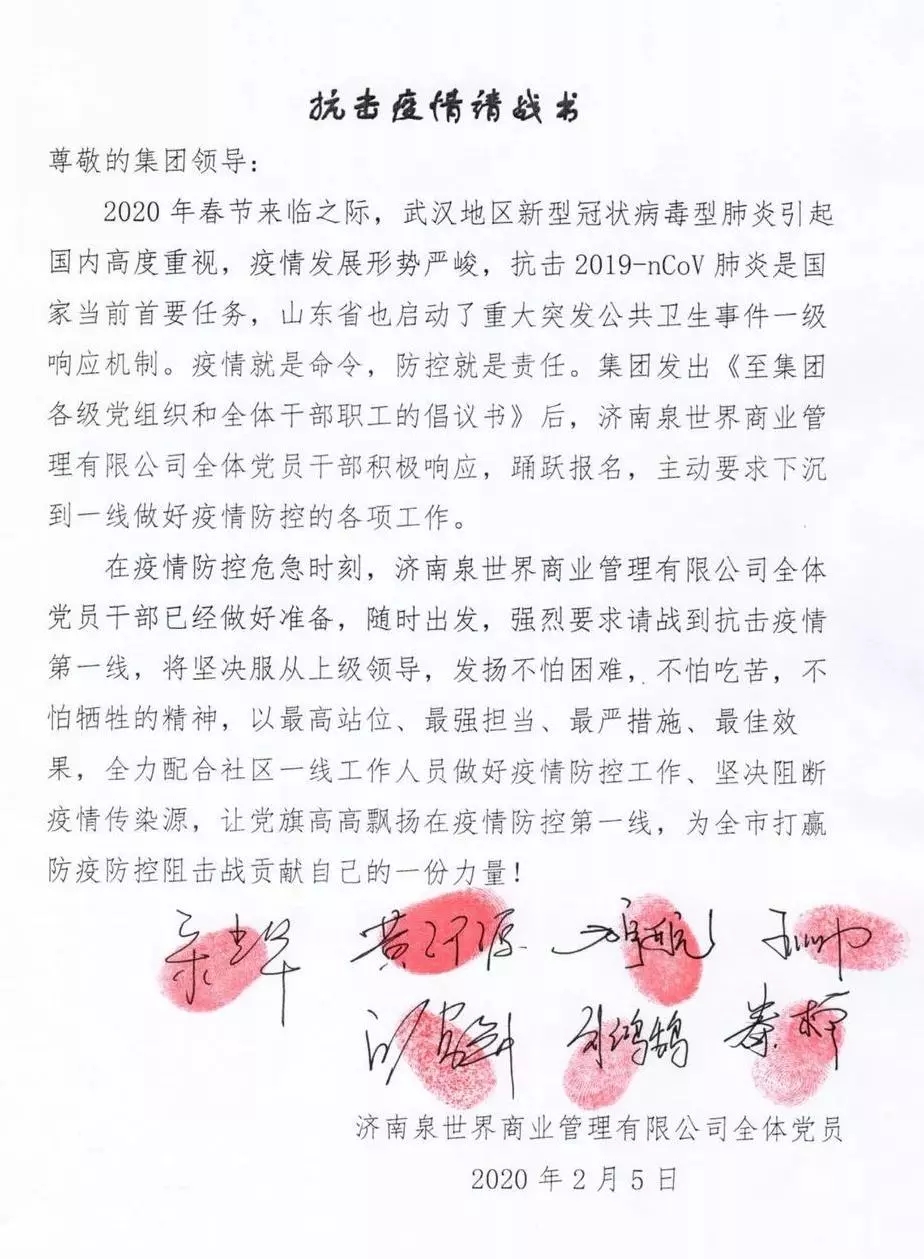 抗击疫情请战书
尊敬的集团领导：
2020 年春节来临之际，武汉地区新型冠状病毒型肺炎引起
国内高度重视，疫情发展形势严峻，抗击 2019-nCoV 肺炎是国
家当前首要任务，山东省也启动了重大突发公共卫生事件一级
响应机制。疫情就是命令，防控就是责任。集团发出《至集团
各级党组织和全体干部职工的倡议书》后，济南泉世界商业管
理有限公司全体党员干部积极响应，踊跃报名，主动要求下沉
到一线做好疫情防控的各项工作。
在疫情防控危急时刻，济南泉世界商业管理有限公司全体
党员干部已经做好准备，随时出发，强烈要求请战到抗击疫情
第一线，将坚决服从上级领导，发扬不怕困难，不怕吃苦，不
怕牺牲的精神，以最高站位、最强担当、最严措施、最佳效
果，全力配合社区一线工作人员做好疫情防控工作、坚决阻断
疫情传染源，让党旗高高飘扬在疫情防控第一线，为全市打赢
防疫防控阻击战贡献自己的一份力量！
刘鸿鹄
济南泉世界商业管理有限公司全体党员
2020 年 2 月 5 日